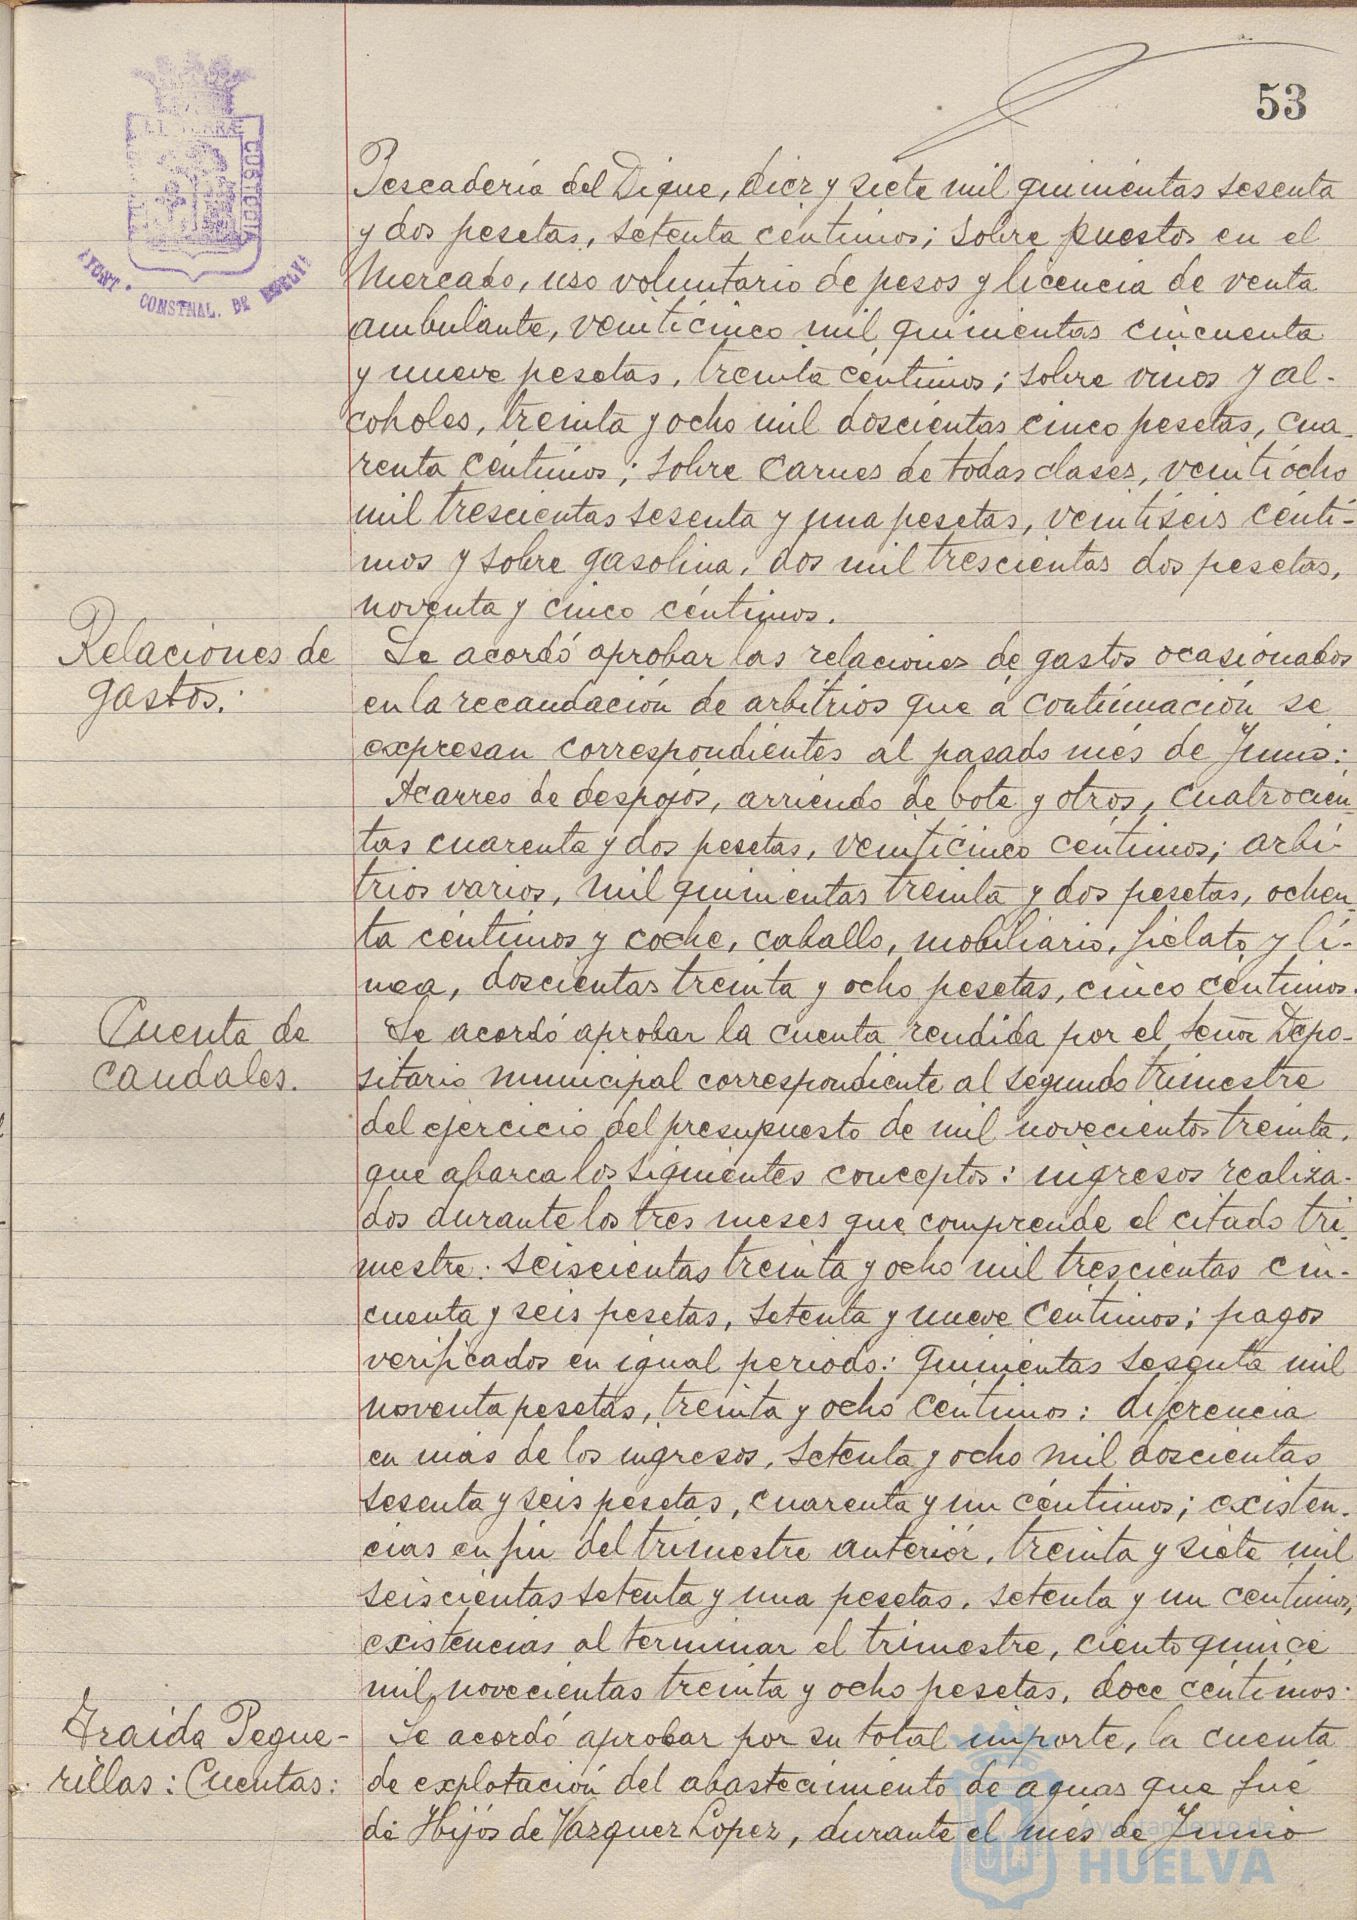 53
PORTUS MARIS ET TERRÆ CUSTODIA
AYUNT.º CONSTNAL. DE HUELVA
Pescadería del Dique, diez y siete mil quinientas sesenta
y dos pesetas, setenta céntimos; sobre puestos en el
Mercado, uso voluntario de pesos y licencia de venta
ambulante, veinticinco mil quinientas cincuenta
y nueve pesetas, treinta céntimos; sobre vinos y al-
coholes, treinta y ocho mil doscientas cinco pesetas, cua-
renta céntimos; sobre carnes de todas clases, veintiocho
mil trescientas sesenta y una pesetas, veintiseis cénti-
mos y sobre gasolina, dos mil trescientas dos pesetas,
noventa y cinco céntimos.
Relaciones de
gastos.
Se acordó aprobar las relaciones de gastos ocasionados
en la recaudación de arbitrios que á continuación se
expresan correspondientes al pasado més de Junio:
Acarreo de despojos, arriendo de bote y otros, cuatrocien-
tas cuarenta y dos pesetas, veinticinco céntimos; arbi-
trios varios, mil quinientas treinta y dos pesetas, ochen-
ta céntimos y coche, caballo, mobiliario, fielato y lí-
nea, doscientas treinta y ocho pesetas, cinco céntimos.
Cuenta de
caudales.
Se acordó aprobar la cuenta rendida por el Señor Depo-
sitario municipal correspondiente al segundo trimestre
del ejercicio del presupuesto de mil novecientos treinta,
que abarca los siguientes conceptos: ingresos realiza-
dos durante los tres meses que comprende el citado tri-
mestre: seiscientas treinta y ocho mil trescientas cin-
cuenta y seis pesetas, setenta y nueve céntimos; pagos
verificados en igual periodo: quinientas sesenta mil
noventa pesetas, treinta y ocho céntimos: diferencia
en más de los ingresos, setenta y ocho mil doscientas
sesenta y seis pesetas, cuarenta y un céntimos; existen-
cias en fin del trimestre anterior, treinta y siete mil
seiscientas setenta y una pesetas, setenta y un céntimos,
existencias al terminar el trimestre, ciento quince
mil novecientas treinta y ocho pesetas, doce céntimos.
Traida Pegue-
rillas: Cuentas:
Se acordó aprobar por su total importe, la cuenta
de explotación del abastecimiento de aguas que fué
de Hijos de Vazquez Lopez, durante el més de Junio
Ayuntamiento de
HUELVA